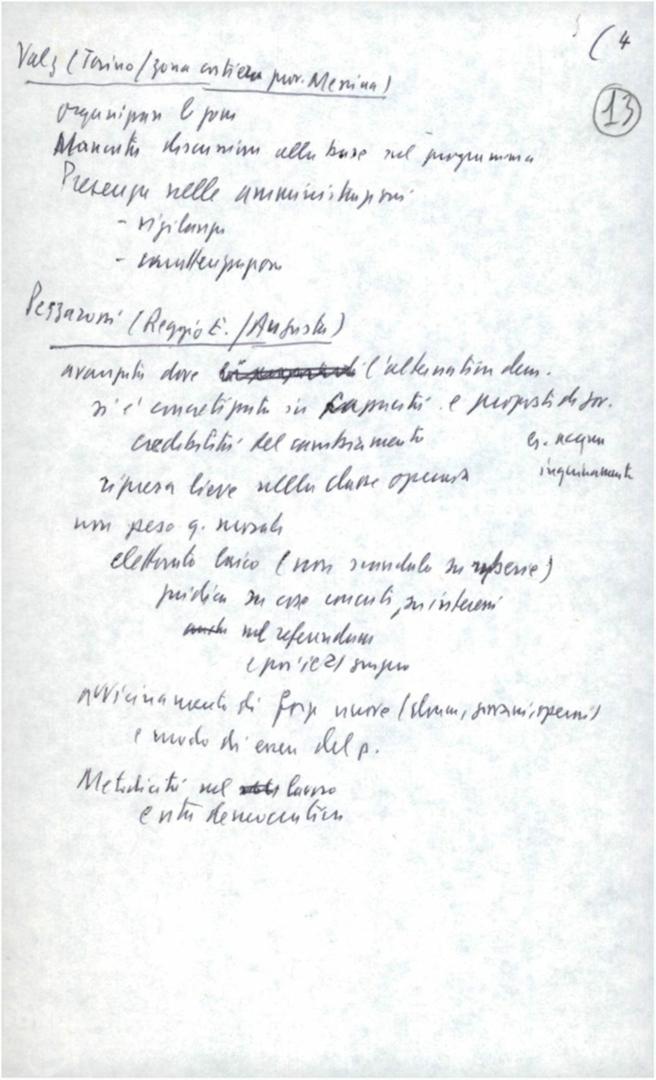 ( 4
13
Valz (Torino / zona costiera prov. Messina)
organizzare le zone
Mancata discussione alla base sul programma
Presenza nelle amministrazioni
- vigilanza
- caratterizzazione
Pezzaroni (Reggio E. / Augusta)
avanzata dove l'alternativa dem.
si è concretizzata in capacità e proposta di gov.
credibilità del cambiamento es. acqua
ripresa lieve nella classe operaia inquinamento
non peso q. morale
elettorato laico (non scandalo su )
giudica su cose concrete, su interessi
anche nel referendum
e poi il 21 giugno
avvicinamento di forze nuove (donne, giovani, operai)
e modo di essere del p.
Metodicità nel lavoro
e vita democratica